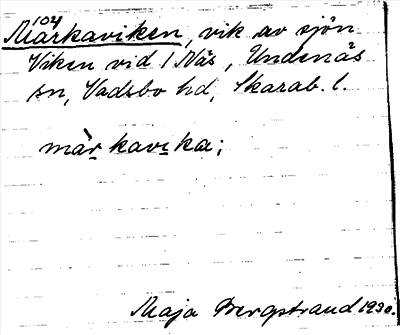 104
Märkaviken, vik av sjön
Viken vid 1 Näs, Undenäs
sn, Vadsbo hd, Skarab. l.
mär̀kavika;
Maja Bergstrand 1930.